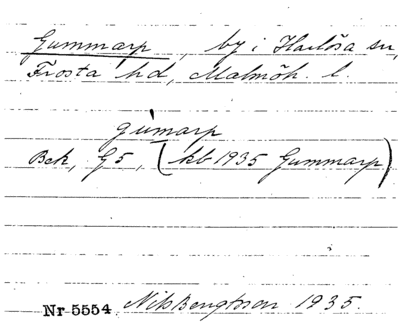 Gummarp, by i Harlösa sn,
Frosta hd, Malmöh. l
gùmarp
Bek, G5, (kb 1935 Gummarp)
Nr 5554 Nils Bengtsson 1935